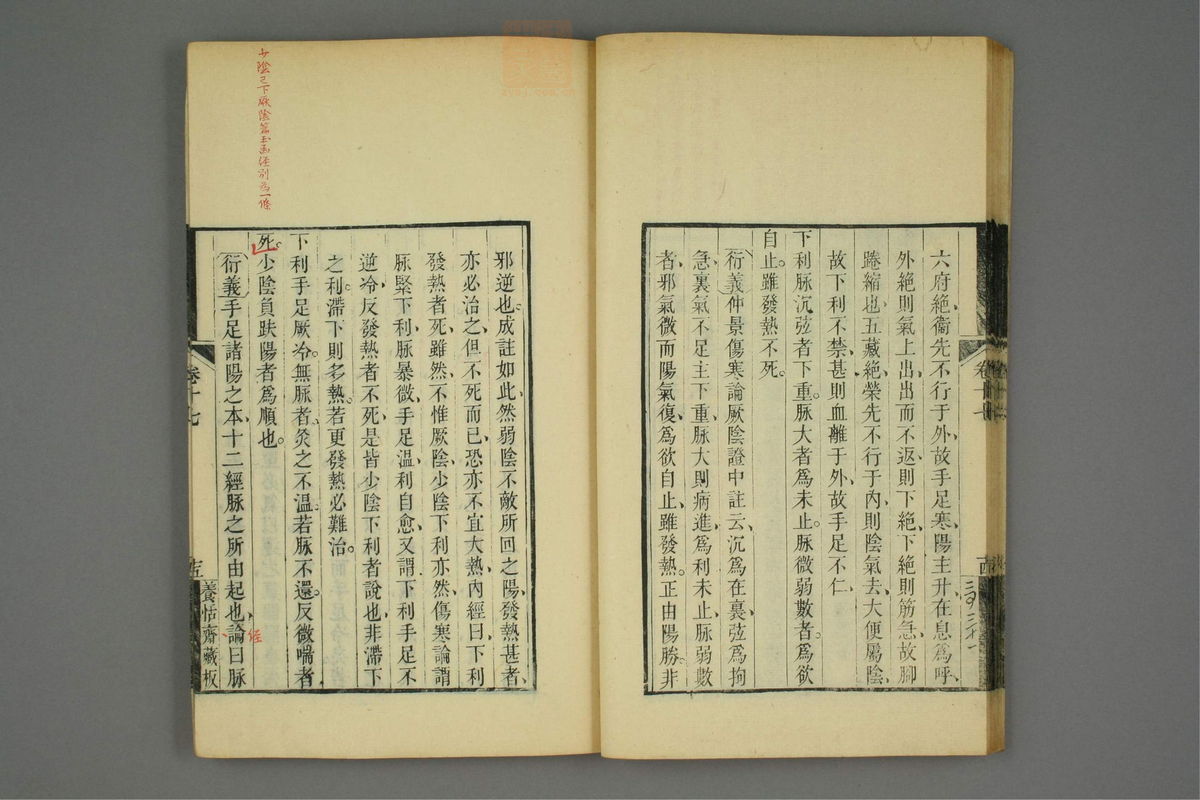 六府絶衞先不行于外故手足寒陽主升在息爲呼
外絶則氣上出出而不返則下絶下絶則筋急故脚
踡縮也五藏絶榮先不行于內則陰氣去大便屬陰
故下利不禁甚則血離于外故手足不仁
下利脉沉弦者下重。脉大者爲未止。脉微弱數者。爲欲
自止。雖發熱不死。
衍義仲景傷寒論厥陰證中註云沉爲在裏弦爲拘
急裏氣不足主下重脉大則病進爲利未止脉弱數
者邪氣微而陽氣復爲欲自止雖發熱。正由陽勝。非
卷十七
邪逆也。成註如此然弱陰不敵所回之陽發熱甚者
亦必治之但不死而已恐亦不宜大熱內經曰下利
發熱者死雖然不惟厥陰少陰下利亦然傷寒論謂
脉緊下利脉暴微手足溫利自愈又謂下利手足不
逆冷反發熱者不死是皆少陰下利者說也非滯下
之利。滯下則多熱若更發熱必難治。
下利手足厥冷。無脉者。灸之不溫。若脉不還。反微喘者
死。少陰負趺陽者爲順也。
衍義手足諸陽之本十二經脉之所由起也論曰脉
經
卷十七
養恬齋藏板
少陰已下厥陰篇玉函經別爲一條